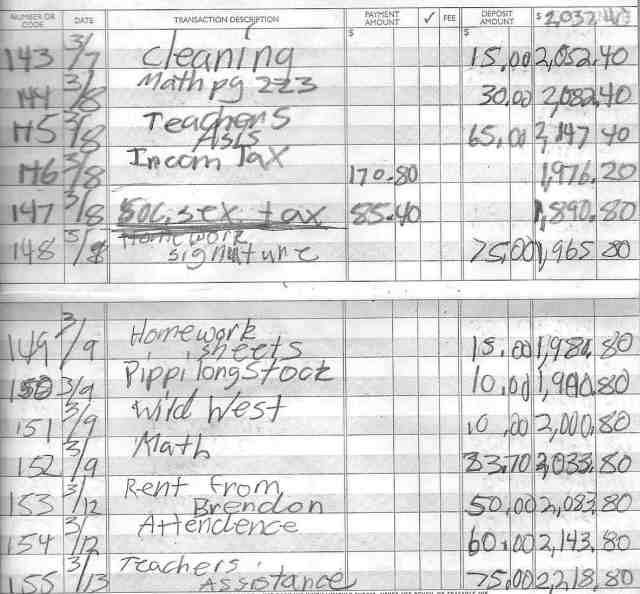 NUMBER OR CODE DATE TRANSACTION DESCRIPTION PAYMENT AMOUNT ✓ FEE DEPOSIT AMOUNT $ 2,032.40
$ $
143 3/7 Cleaning 15.00 2,052.40
144 3/8 Math pg 223 30.00 2,082.40
145 3/8 Teachers Asis 65.00 2,147 40
146 3/8 Incom Tax 170.80 1,976.20
147 3/8 Soc. sex. tax 85.40 1,890.80
148 3/8 Homework
signuture 75.00 1,965 80
149 3/9 Homework
sheets 15.00 1,980.80
150 3/9 Pippi longstock 10.00 1,990.80
151 3/9 Wild West 10.00 2,000.80
152 3/9 Math 33.70 2,033.80
153 3/12 Rent from
Brendon 50.00 2,083.80
154 3/12 Attendence 60.00 2,143.80
155 3/13 Teachers
Assistance 75.00 2,218.80